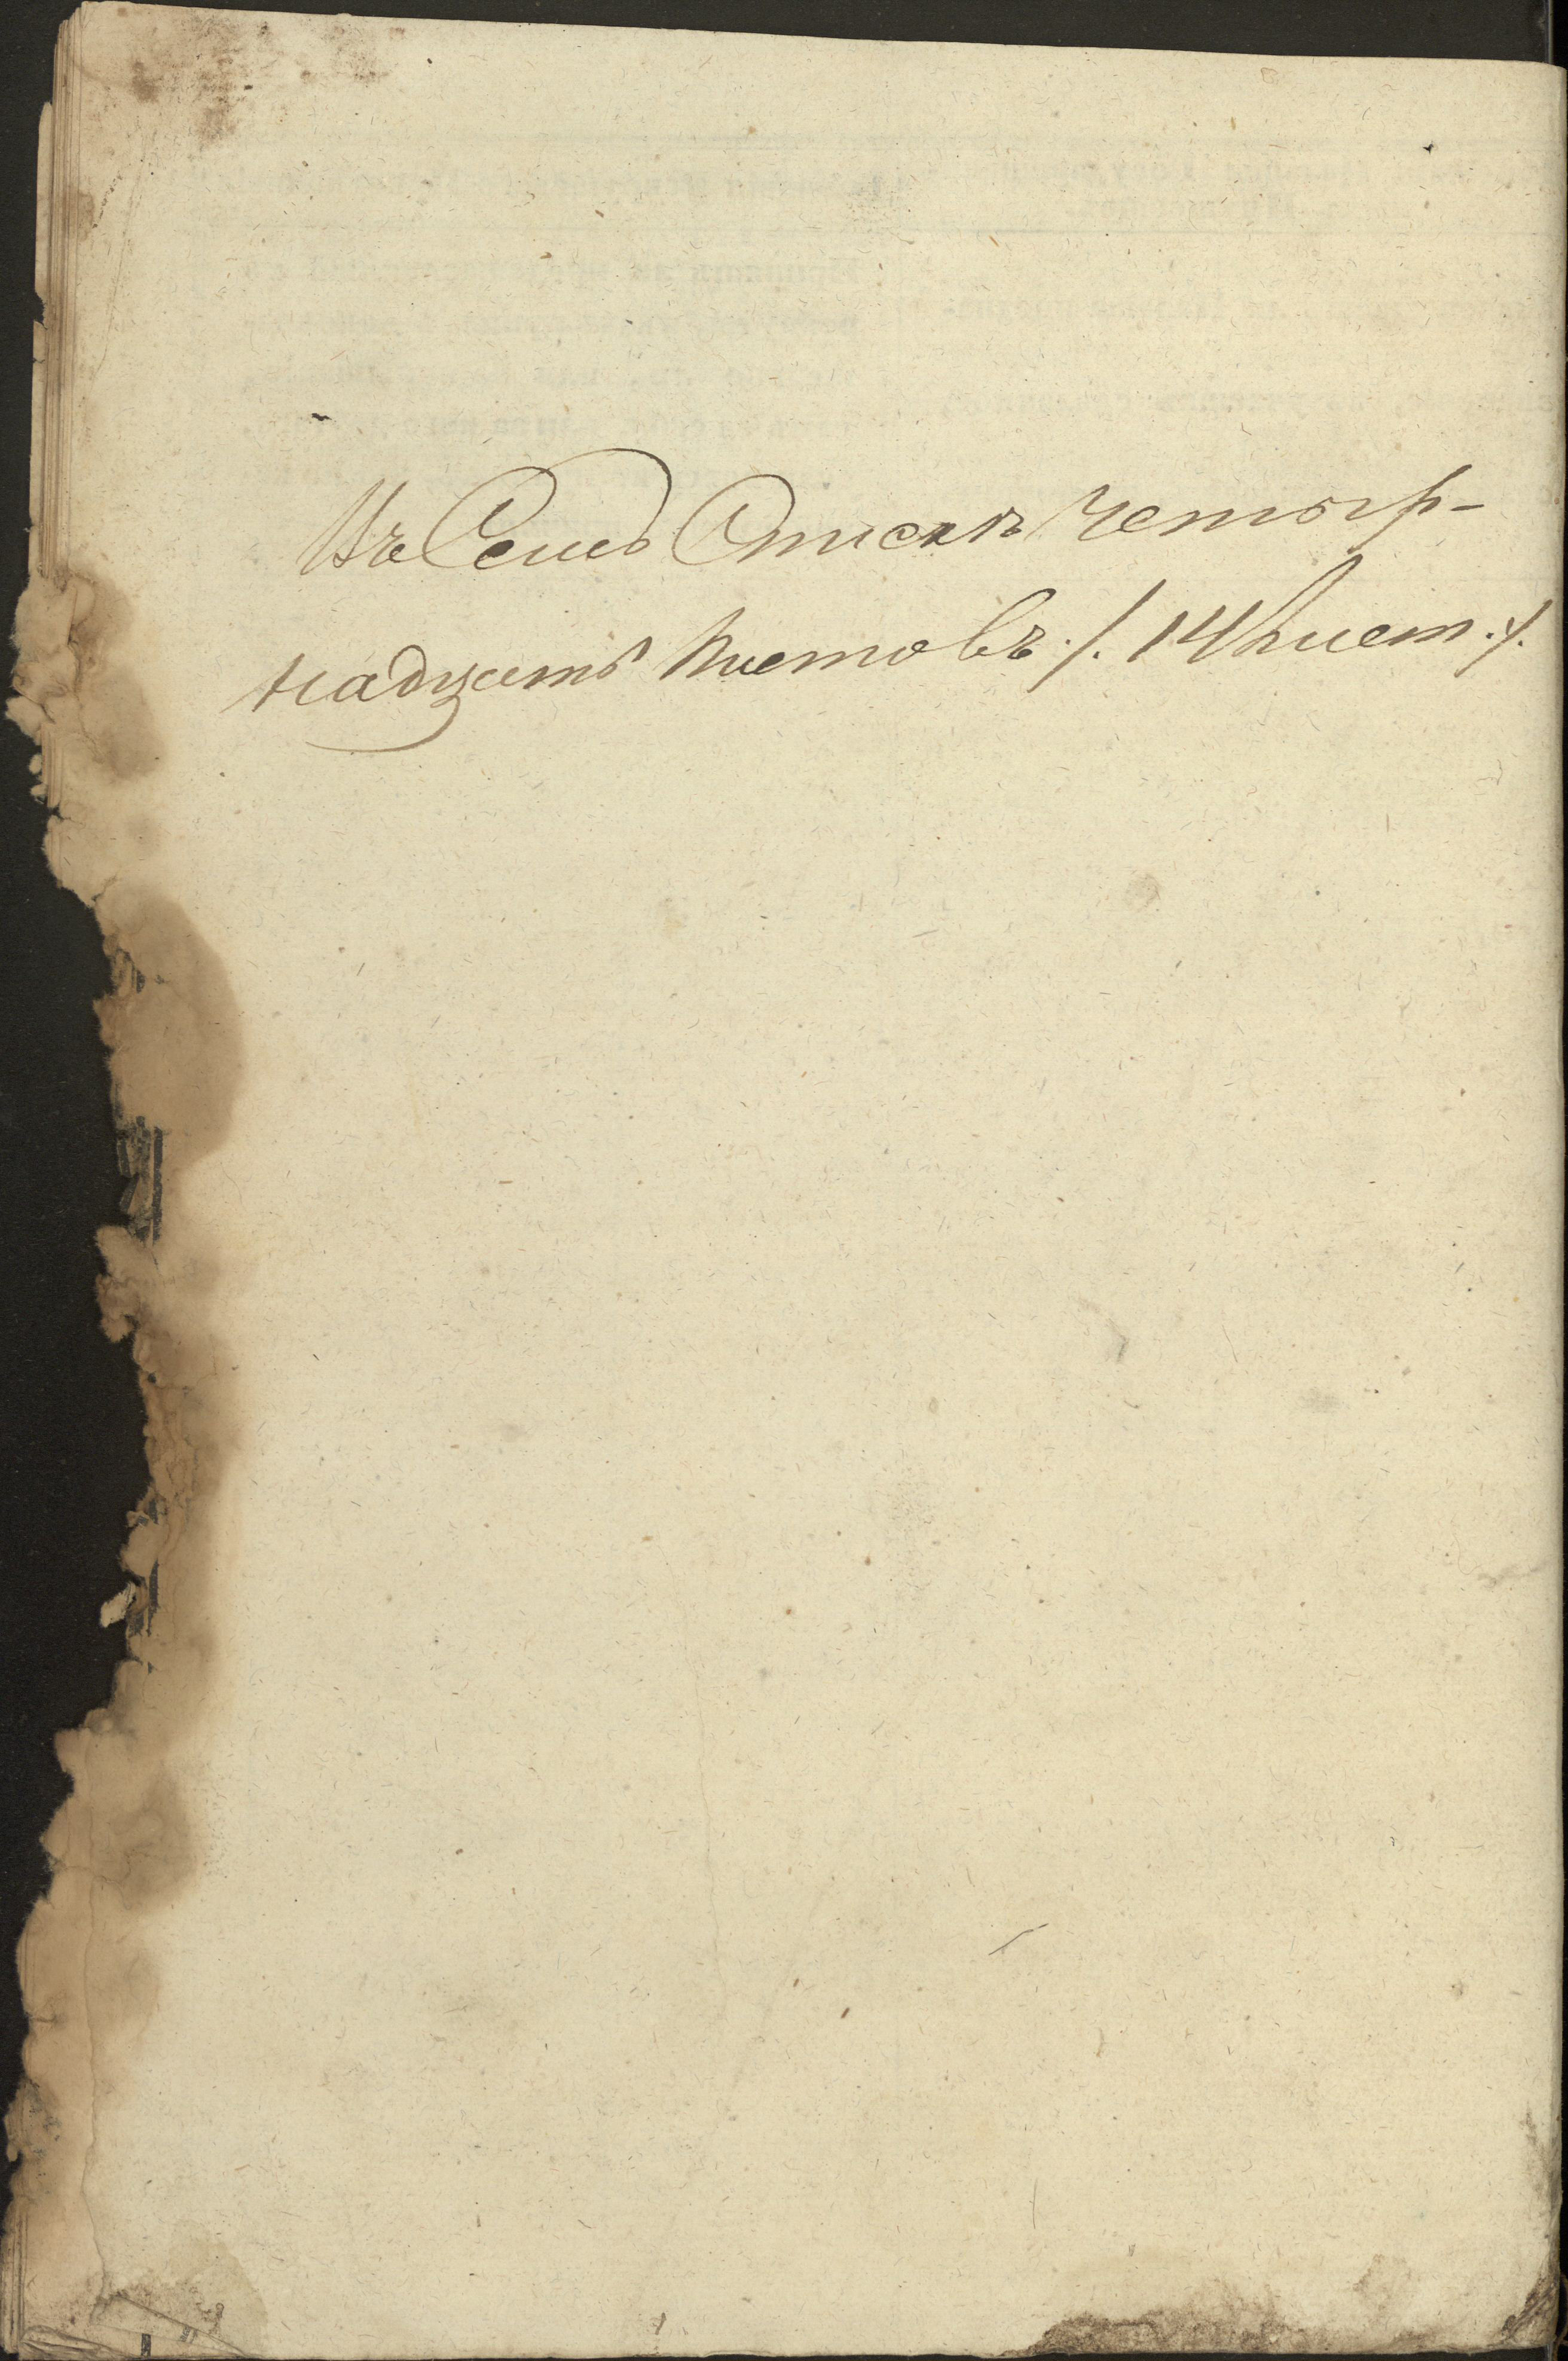 Въ Семъ Списк​ѣ Четыр-
надцать Листовъ ./. 14 Лист ./.